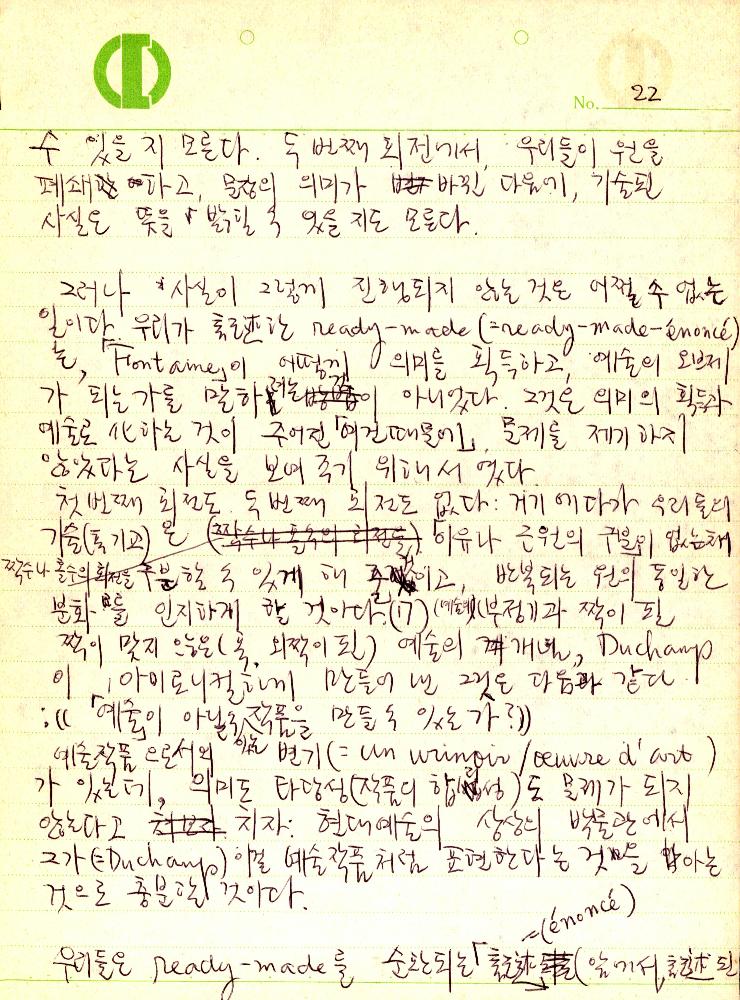 No. 22
수 있을 지 모른다. 두 번째 회전에서, 우리들이 원을
폐쇄 하고, 문장의 의미가 바뀐 다음에, 기술된
사실은 뜻을 밝힐 수 있을 지도 모른다.
그러나 사실이 그렇게 진행되지 않는 것은 어쩔 수 없는
일이다. 우리가 記述한 ready-made (=ready-made-énoncé)
는, 「Fontaine」이 어떻게 의미를 획득하고, 예술의 오브제
가 되는가를 말하려는 이 아니었다. 그것은 의미의 획득과
예술로 化하는 것이 주어진 「여건 때문에」, 문제를 제기하지
않았다는 사실을 보여 주기 위해서 였다.
첫번째 회전도 두번째 회전도 없다: 거기에다가 우리들의
기술(혹기고)은 (짝수나 홀수의 회전들) 이유나 근원의 구분이 없는채
짝수나 홀수의 회전을 구분할 수 있게 해 이고, 반복되는 원의 동일한
분화 를 인지하게 할 것이다. (17) (부정)과 짝이 된
짝이 맞지 않은(혹, 외짝이 된) 예술의 개념, Duchamp
이 아이로니컬하게 만들어 낸 그것은 다음과 같다.
:(( 「예술」이 아닐수있는 작품을 만들 수 있는가?))
예술작품으로서의 변기(=un urinoir/oeuvre d'art)
가 있는데, 의미도 타당성(작품의 합법성)도 문제가 되지
않는다고 치자: 현대예술의 상상의 박물관에서
그가(=Duchamp) 이걸 예술작품처럼 표현한다는 것을 아는
것으로 충분할 것이다.
=(énoncé)
우리들은 ready-made를 순환되는 「記述」(앞에서 記述된